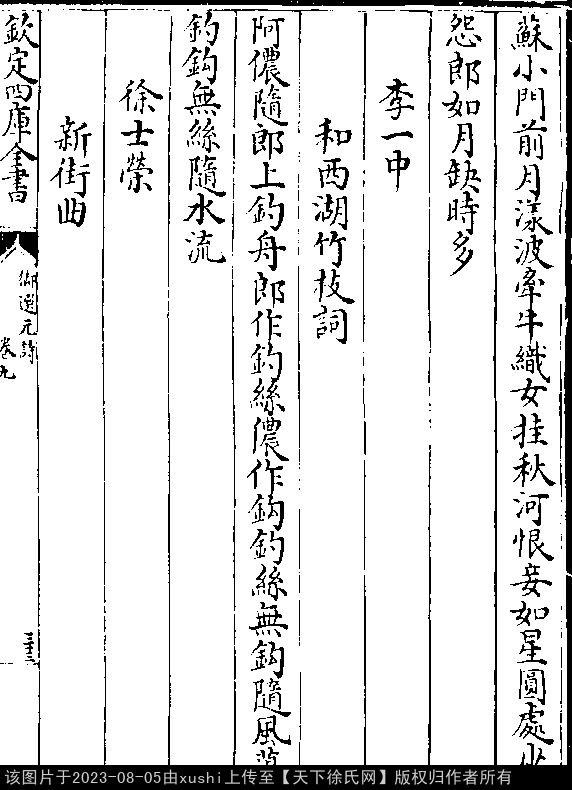 蘇小門前月漾波牽牛織女挂秋河恨妾如星圓處少
怨郎如月缺時多
李一中
和西湖竹枝詞
阿儂隨郎上釣舟郎作釣絲儂作鈎釣絲無鈎隨風
釣鈎無絲隨水流
徐士榮
新街曲
欽定四庫全書
御選元詩
卷九
三三
该图片于2023-08-05由xushi上传至【天下徐氏网】版权归作者所有